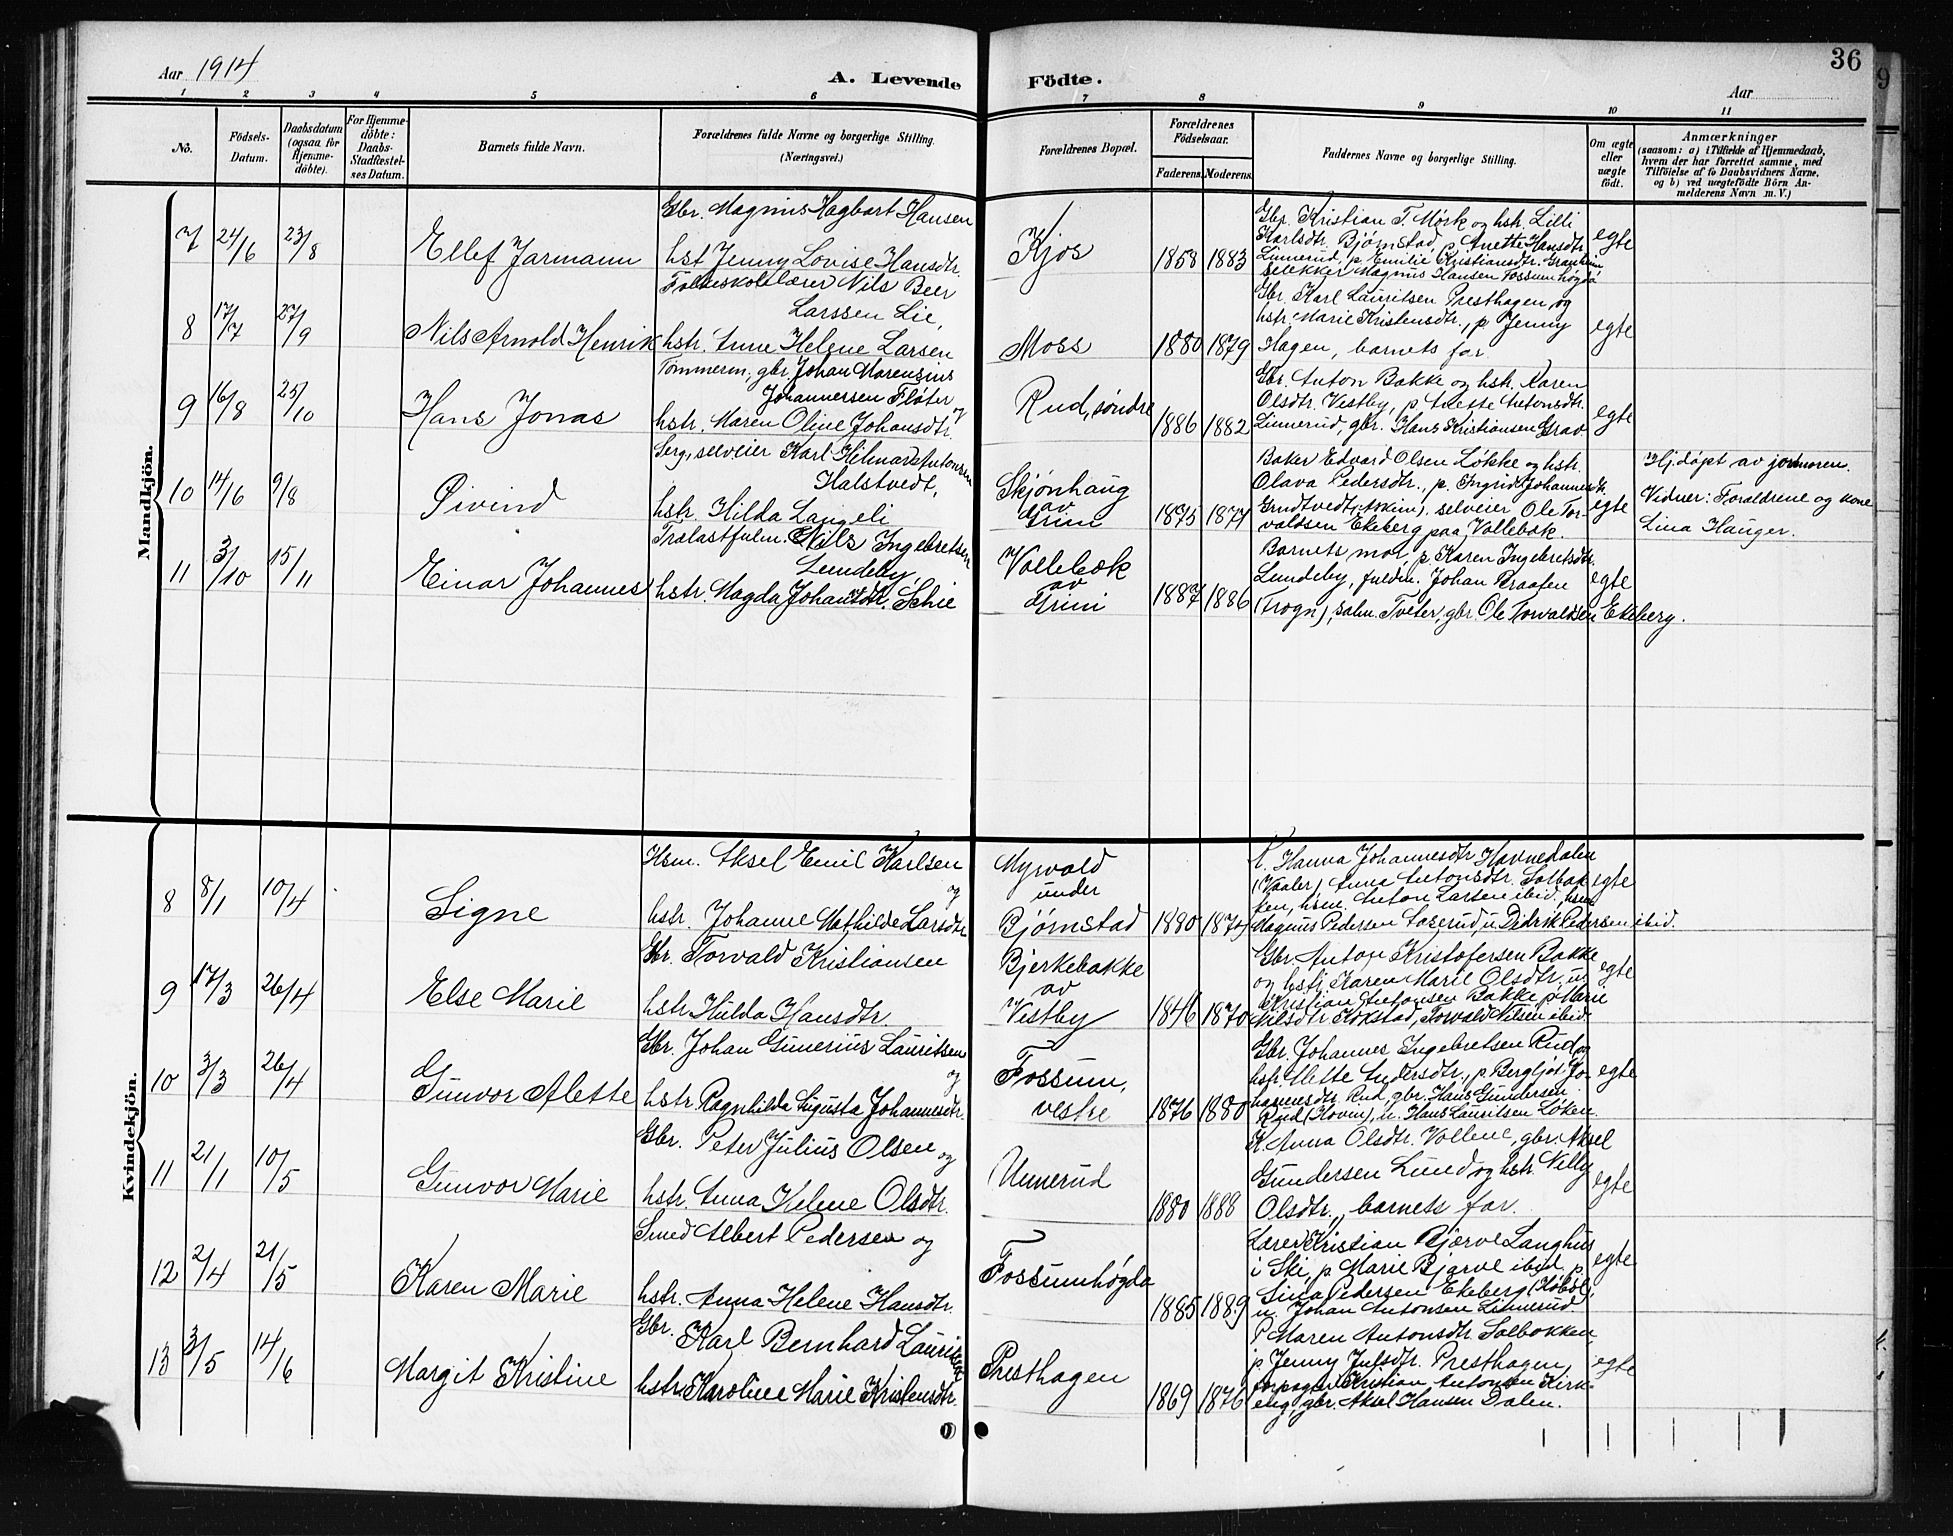 36
Aar 1914
A. Levende Födte.
Aar
1 2 3 4 5 6 7 8 9 10 11
No.
Födsels-Datum.
Daabsdatum (ogsaa for Hjemme-döbte).
For Hjemme-döbte: Daabs-Stadfæstel-ses Datum.
Barnets fulde Navn.
Forældrenes fulde Navne og borgerlige Stilling.
(Næringsvei.)
Forældrenes Bopæl.
Forældrenes Födselsaar.
Faderens. Moderens.
Faddernes Navne og borgerlige Stilling.
Om ægte eller uægte födt.
Anmærkninger
(saasom: a) i Tilfælde af Hjemmedaab,
hvem der har forrettet samme, med
Tilföielse af to Daabsvidners Navne,
og b) ved uægtefödte Börn An-
melderens Navn m. V.)
Mandkjön.
7 24/6 23/8 Ellef Jarmann
Gbr. Magnus Hagbart Hansen
hst Jenny Lovise Hansdtr.
Kjos 1858 1883
Gbr. Kristian T. Mørk og hstr. Lilli
Karlsdtr. Bjørnstad, p. Anette Hansdtr.
Linnerud, p. Emilie Kristiansdtr.
Magnus Hansen Fossumhøgda
egte
8 17/7 27/9 Nils Arnold Henrik
Folkeskolelærer Nils Peer
Larssen Lie,
hstr. Anne Helene Larsen
Moss 1880 1879
Gbr. Karl Lauritsen Presthagen og
hstr. Marie Kristensdtr., p Jenny
Hagen, barnets far.
egte
9 16/8 25/10 Hans Jonas
Tømmerm. gbr. Johan Marensius
Johannersen Fløter
hstr. Maren Oline Johansdtr.
Rud, søndre 1886 1882
Gbr. Anton Bakke og hstr. Karen
Olsdtr. Vestby, p Anette Antonsdtr.
Linnerud, gbr. Hans Kristiansen Grav
egte
10 14/6 9/8 Øivind
Serg., selveier Karl Hilmar Antonsen
Halstvedt,
hstr. Hilda Langeli
Skjønhaug
av
Grini 1875 1877
Baker Edvard Olsen Løkke og hstr.
Olava Pedersdtr., p. Ingrid Johannesdtr.
Grudtvedt (Askim), selveier Ole Tor-
valdsen Ekeberg paa Vollebæk.
egte
Hj.døpt av jormoren.
Vidner: Foraldrene og kone
Lina Hauger.
11 3/10 15/11 Einar Johannes
Trælastfulm. Nils Ingebretsen
Lundeby,
hstr. Magda Johansdtr. Schie
Vollebæk
av
Grini 1887 1886
Barnets mor, p. Karen Ingebretsdtr.
Lundeby, fuldm. Johan Braaten
(Frogn), salm. Tveter, gbr. Ole Torvaldsen Ekeberg.
egte
Kvindekjön.
8 8/1 10/4 Signe
Hsm. Aksel Emil Karlsen
og
hstr. Johanne Mathilde Larsdtr
Myrvold
under
Bjørnstad 1880 1879
K. Hanna Johannesdtr Havnedalen
(Vaaler), Anna Antonsdtr. Solbak-
ken, hsm Anton Larsen ibid, hsm
Magnus Pedersen Laserud, u Didrik Pedersen ibid.
egte
9 17/3 26/4 Else Marie
Gbr. Torvald Kristiansen
hstr Hulda Hansdtr
Bjerkebakke
av
Vestby 1846 1870
Gbr Anton Kristofersen Bakke
og hstr. Karen Marie Olsdtr, u
Kristian Antonsen Bakke, p Marie
Nilsdtr Kokstad, Torvald Nilsen ibid.
egte
10 3/3 26/4 Gunvor Alette
Gbr. Johan Gunerius Lauritsen
og
hstr. Ragnhilda Augusta Johannesdtr.
Fossum,
vestre 1876 1880
Gbr. Johannes Ingebretsen Rud og
hstr Mette Andersdtr., p Bergljot Jo-
hannesdtr. Rud, gbr. Hans Gundersen
Rud (Hovin), u. Hans Lauritsen Løken.
egte
11 21/1 10/5 Gunvor Marie
Gbr. Peter Julius Olsen og
hstr. Anna Helene Olsdtr.
Unnerud 1880 1888
K. Anna Olsdtr. Vollene, gbr. Aksel
Gundersen Lund og hstr. Nilly
Olsdtr., barnets far.
egte
12 2/4 21/5 Karen Marie
Smed Albert Pedersen og
hstr. Anna Helene Hansdtr.
Fossumhøgda 1885 1889
Lærer Kristian Bjerve Langhus
i Ski, p Marie Bjerve ibid, p
Lina Pedersen Ekeberg (Hobøl)
u. Johan Antonsen Linnerud
egte
13 3/5 14/6 Margit Kristine
Gbr. Karl Bernhard Lauritsen
hstr Karoline Marie Kristensdtr.
Presthagen 1869 1876
P Maren Antonsdtr Solbakken,
p Jenny Julsdtr. Presthagen,
forpagter Kristian Antonsen Kirk-
eng, gbr. Aksel Hansen Dalen.
egte